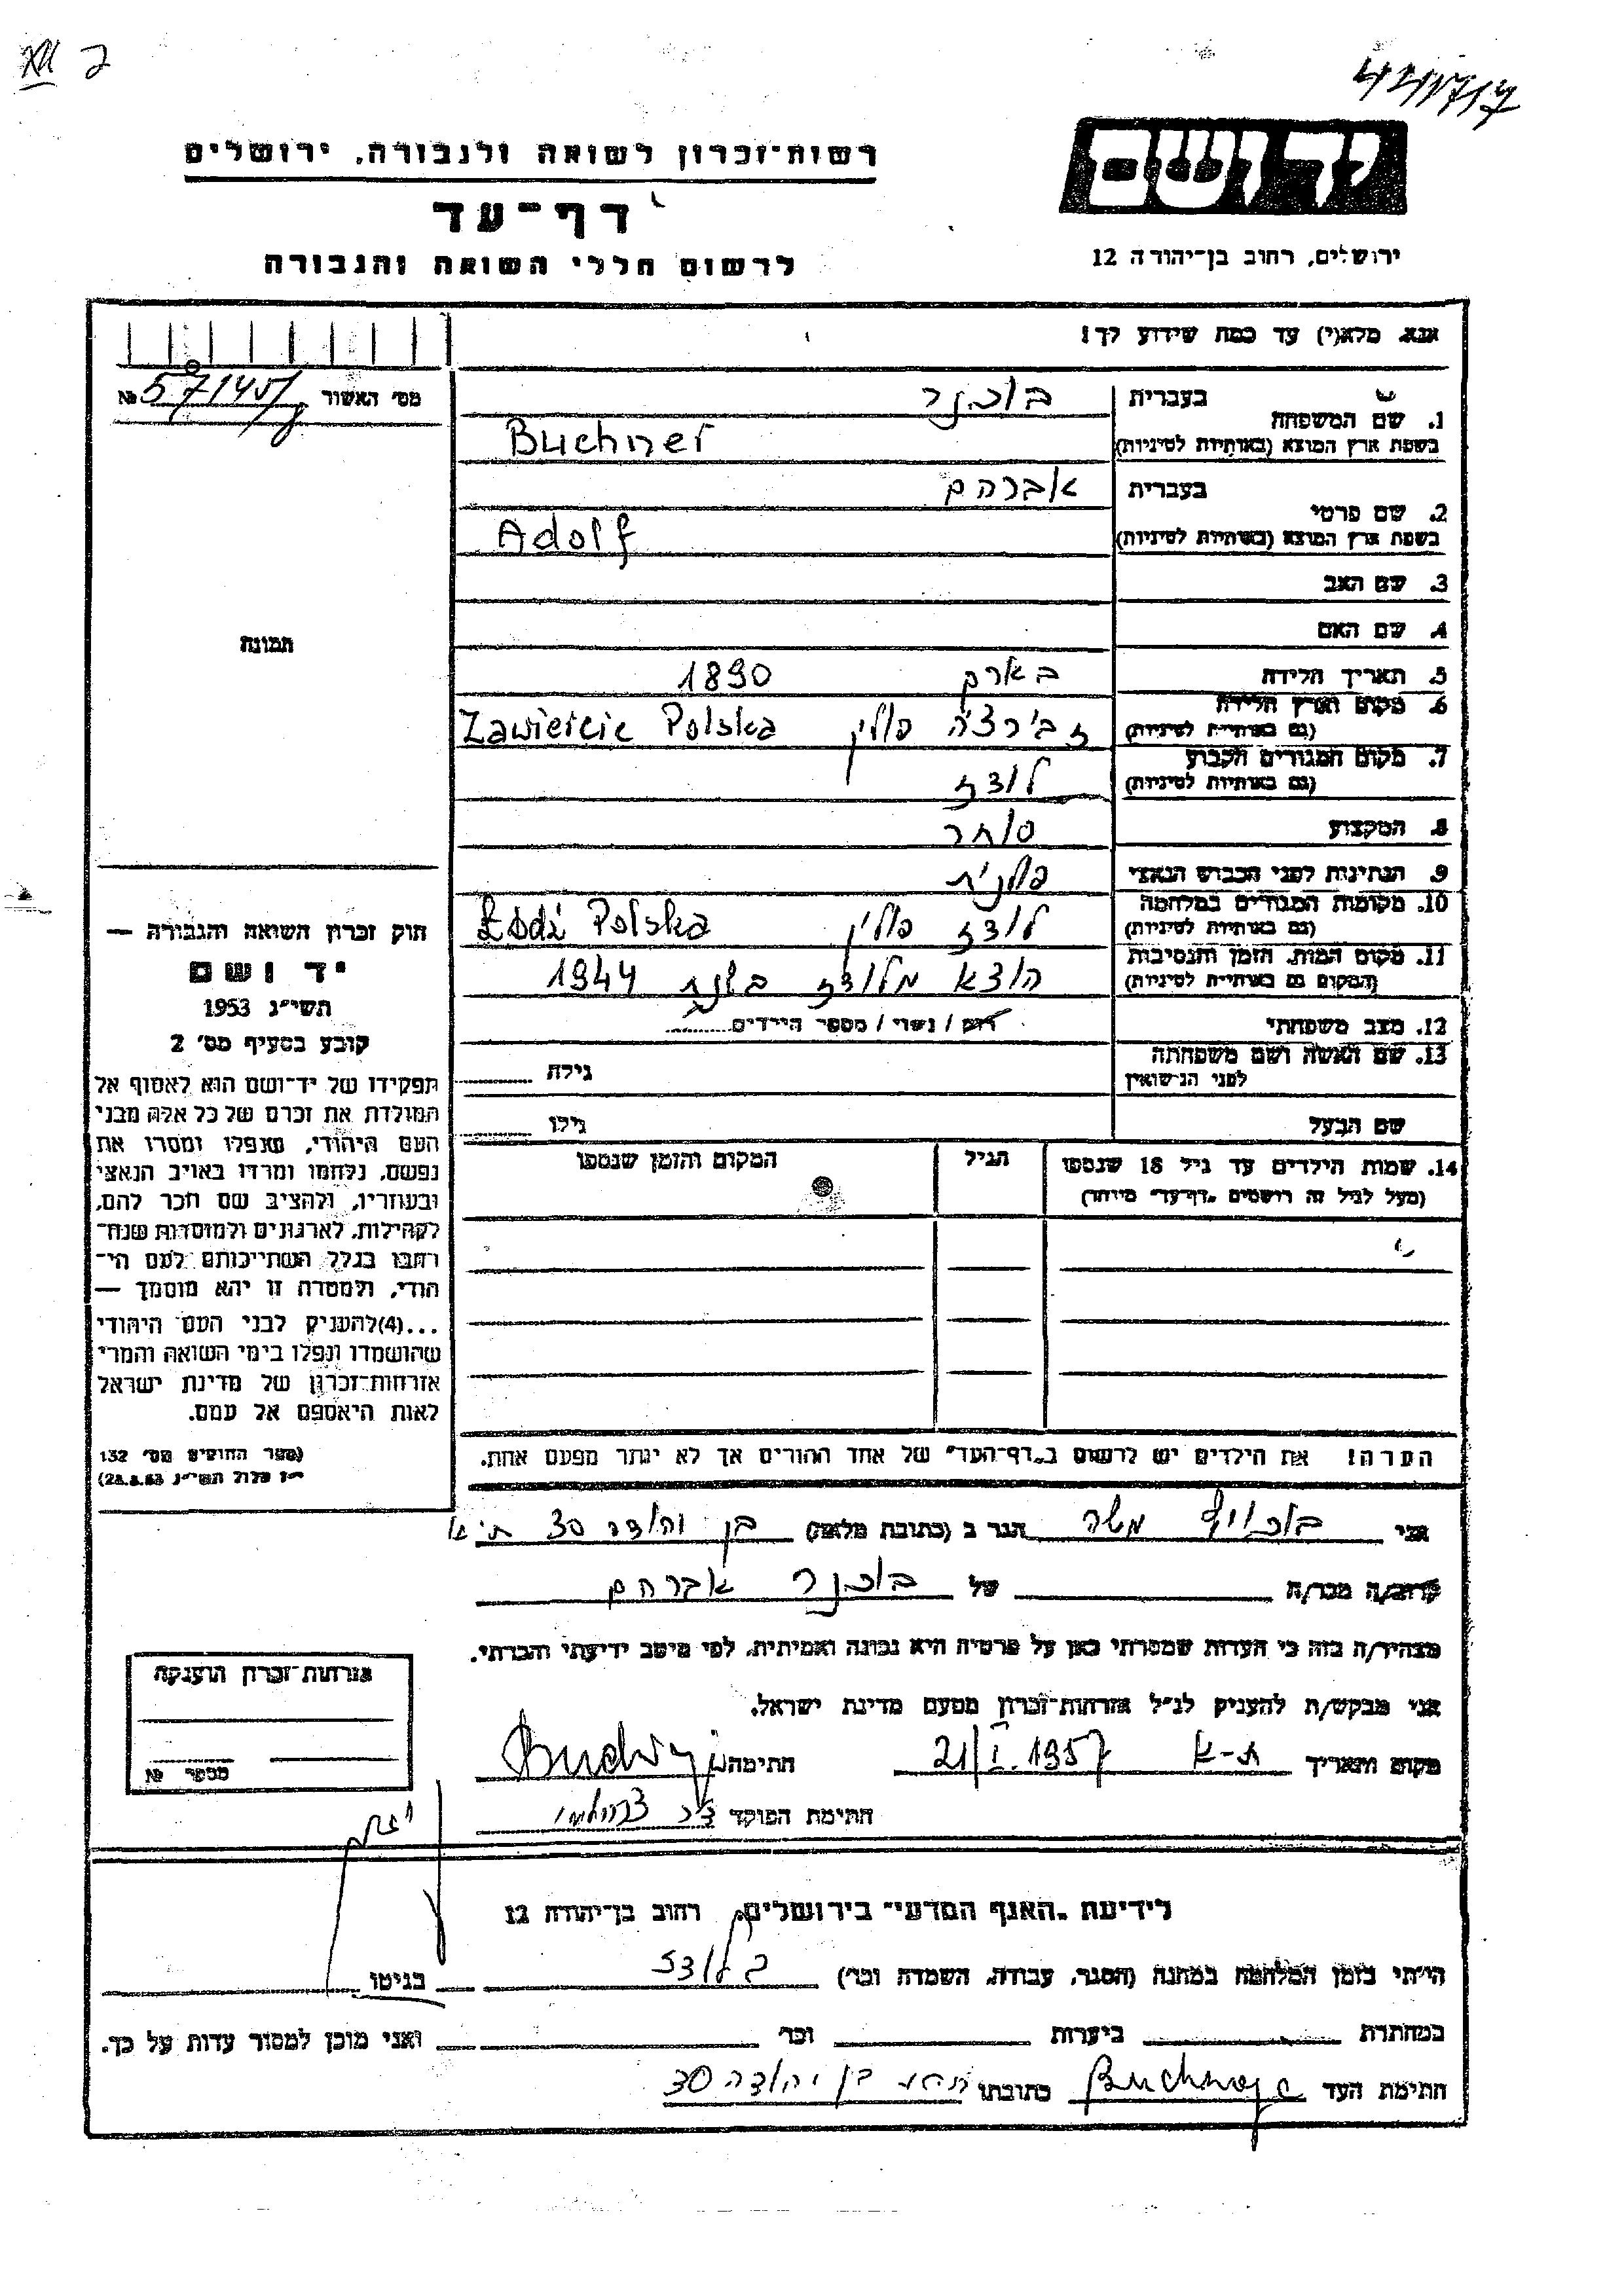 רשות־זכרון לשואה ולגבורה, ירושלים
דף־עד
לרשום חללי השואה והגבורה
יד ושם
ירושלים, רחוב בן־יהודה 12
אנא, מלא(י) עד כמה שידוע לך!
מס' האשור №
תמונה
1. שם המשפחה
בעברית בוכנר
בשפת ארץ המוצא (באותיות לטיניות) Buchner
2. שם פרטי
בעברית אברהם
בשפת ארץ המוצא (באותיות לטיניות) Adolf
3. שם האב
4. שם האם
5. תאריך הלידה בערך 1890
6. מקום וארץ הלידה
(גם באותיות לטיניות) פולין Zawiercie Polska
7. מקום המגורים הקבוע
(גם באותיות לטיניות) לודז
8. המקצוע סוחר
9. הנתינות לפני הכבוש הנאצי פולנית
10. מקומות המגורים במלחמה
(גם באותיות לטיניות) לודז פולין Łódź Polska
11. מקום המות, הזמן והנסיבות
(המקום גם באותיות לטיניות) הוצא מלודז בשנת 1944
12. מצב משפחתי רווק / נשוי / מספר הילדים
13. שם האשה ושם משפחתה
לפני הנישואין גילה
שם הבעל גילו
14. שמות הילדים עד גיל 18 שנספו
(מעל לגיל זה רושמים „דף־עד" מיוחד)
הגיל
המקום והזמן שנספו
הערה! את הילדים יש לרשום ב„דף־העד" של אחד ההורים אך לא יותר מפעם אחת.
חוק זכרון השואה והגבורה —
יד ושם
תשי"ג 1953
קובע בסעיף מס' 2
תפקידו של יד־ושם הוא לאסוף אל
המולדת את זכרם של כל אלה מבני
העם היהודי, שנפלו ומסרו את
נפשם, נלחמו ומרדו באויב הנאצי
ובעוזריו, ולהציב שם וזכר להם,
לקהילות, לארגונים ולמוסדות שנח־
רבו בגלל השתייכותם לעם הי־
הודי, ולמטרה זו יהא מוסמך —
...(4)להעניק לבני העם היהודי
שהושמדו ונפלו בימי השואה והמרי
אזרחות־זכרון של מדינת ישראל
לאות היאספם אל עמם.
(ספר החוקים מס' 132
י"ז אלול תשי"ג 28.8.53)
אני משה הגר ב (כתובת מלאה) בן יהודה 30 ת"א
קרוב/ה מכר/ה של בוכנר אברהם
מצהיר/ה בזה כי העדות שמסרתי כאן על פרטיה היא נכונה ואמיתית, לפי מיטב ידיעתי והכרתי.
אני מבקש/ת להעניק לנ"ל אזרחות־זכרון מטעם מדינת ישראל.
מקום ותאריך ת-א 21/I.1957 חתימה
חתימת הפוקד
אזרחות־זכרון הוענקה
מספר №
לידיעת „האגף המדעי" בירושלים, רחוב בן־יהודה 12
הייתי בזמן המלחמה במחנה (הסגר, עבודה, השמדה וכו') בגיטו
בלודז
במחתרת ביערות וכו' ואני מוכן למסור עדות על כך.
חתימת העד כתובתו בן יהודה 30